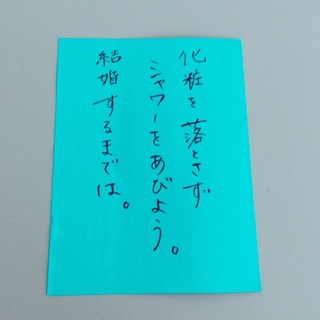 化粧を落とさず
シャワーをあびよう。
結婚するまでは。